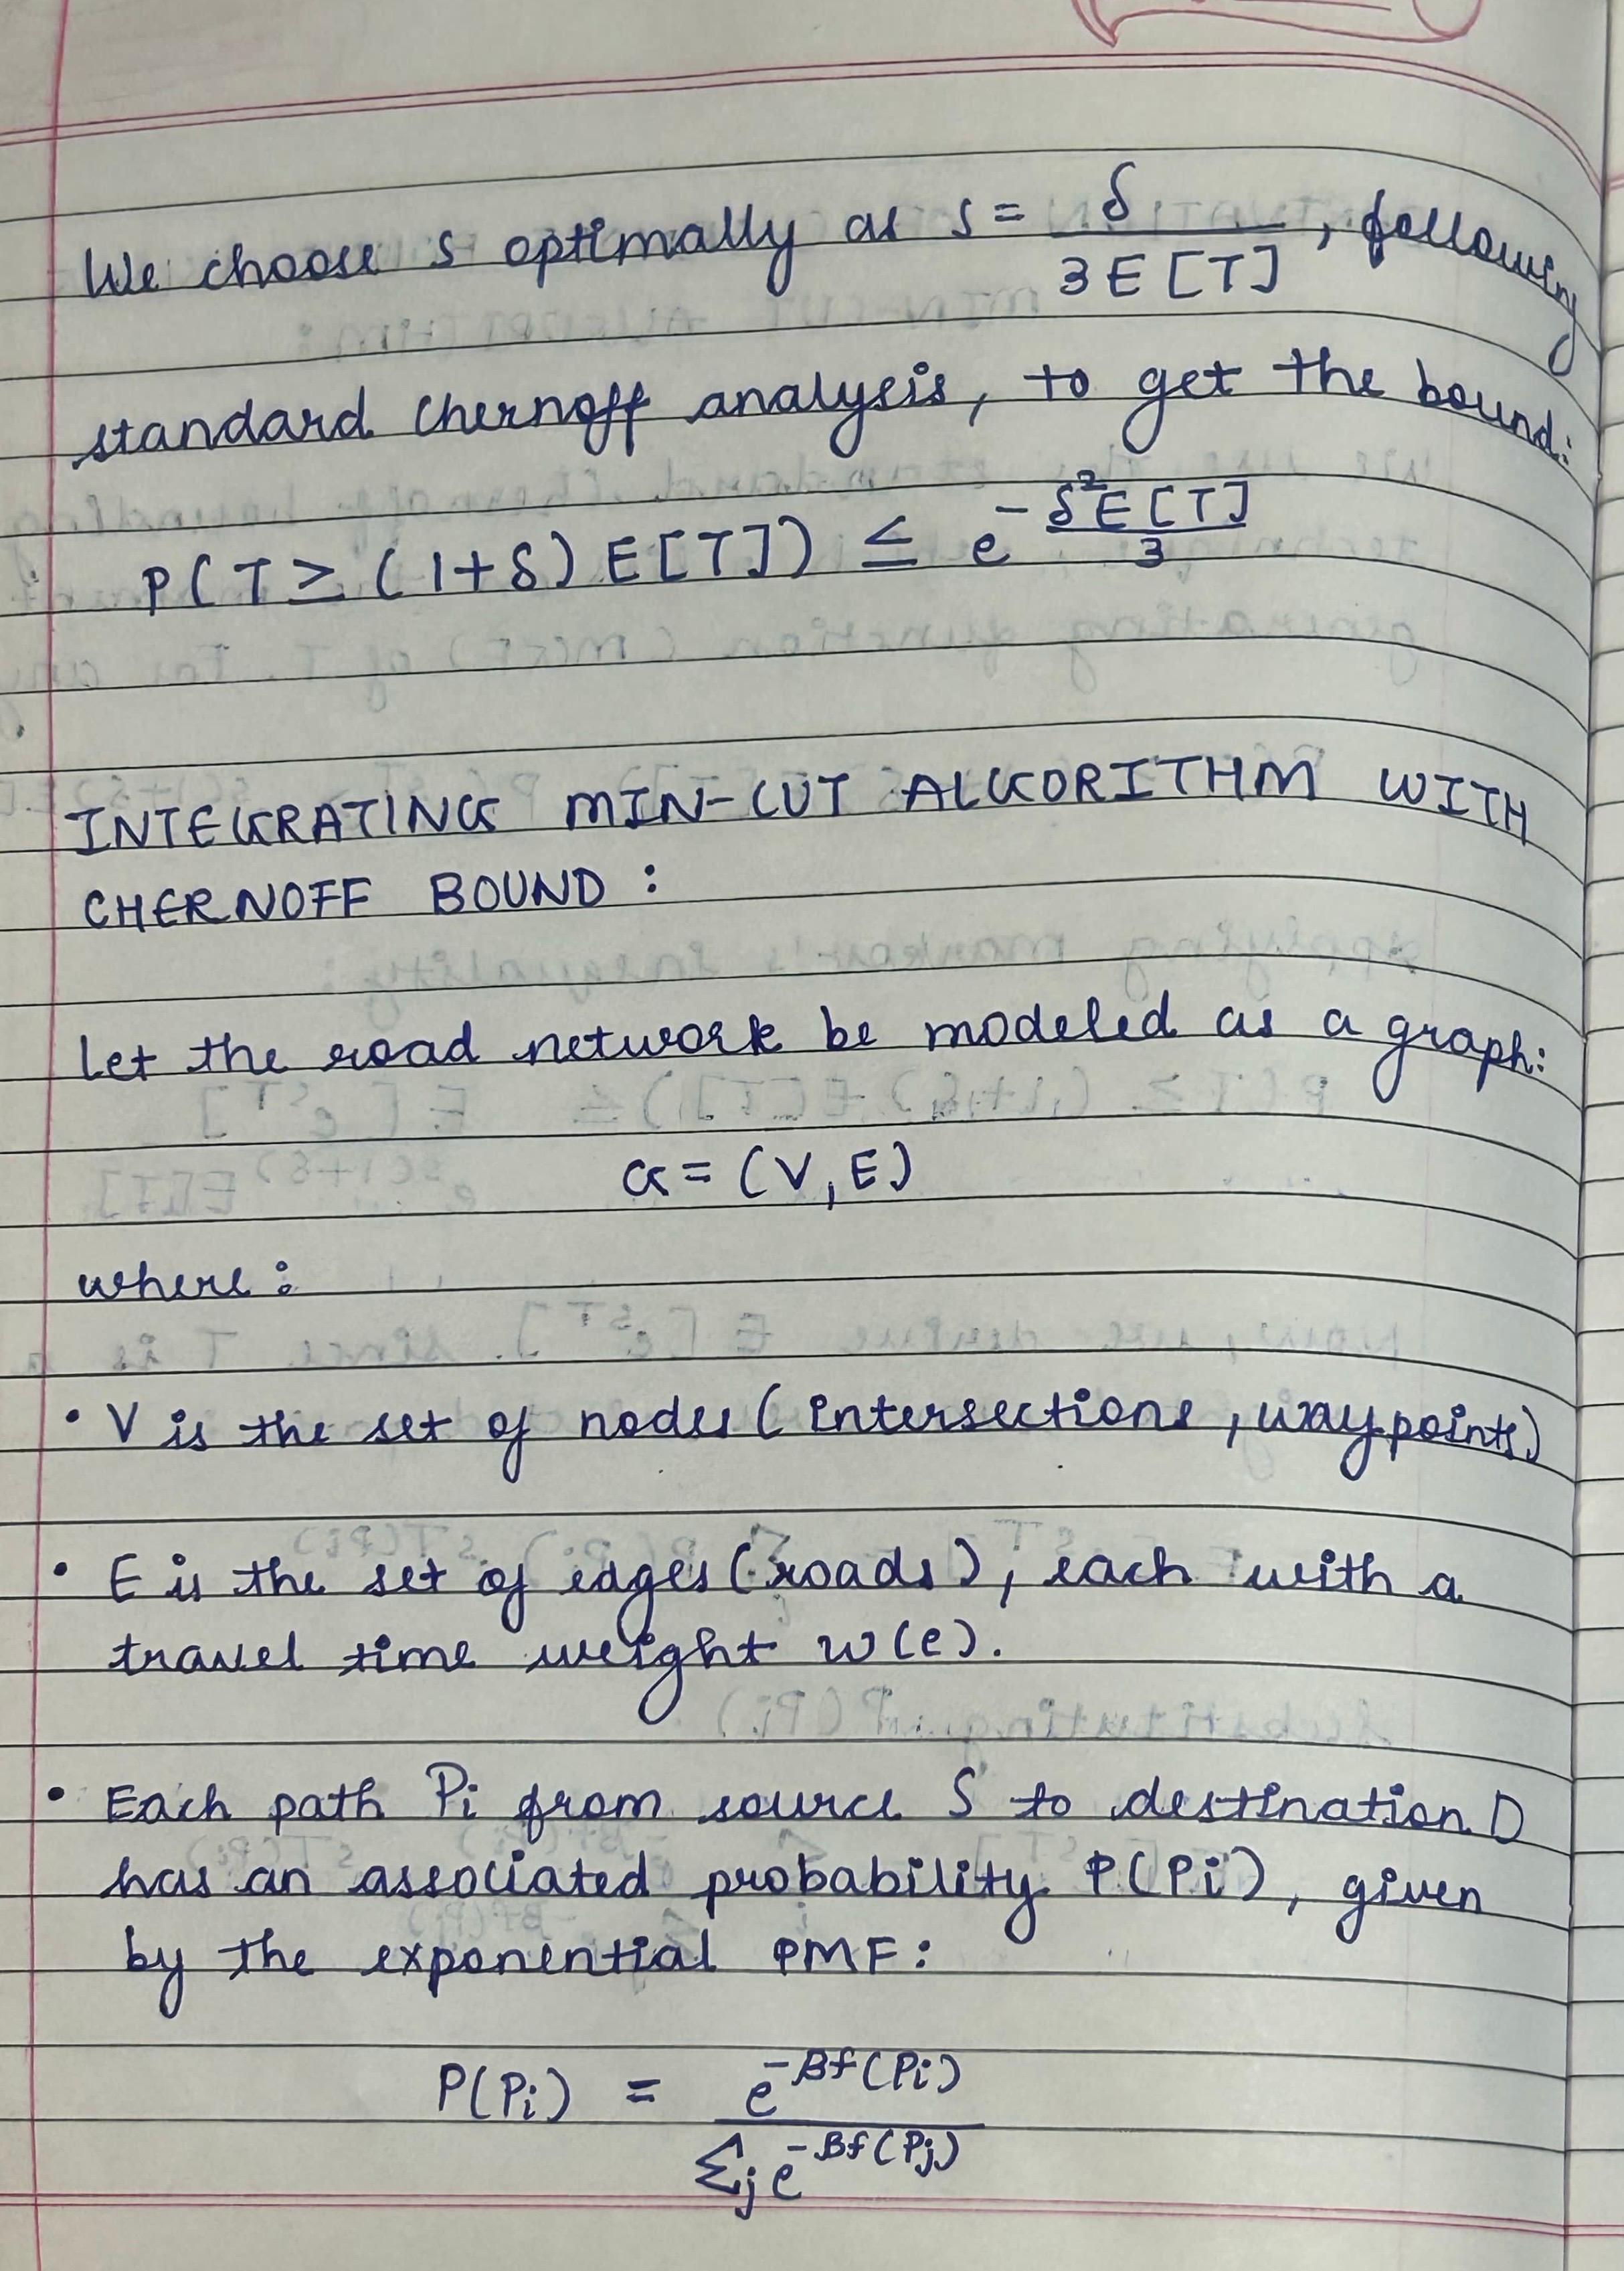 We choose s optimally as s = δ / 3E[T], following
standard Chernoff analysis, to get the bound:
P(T ≥ (1+δ) E[T]) ≤ e^(-δ²E[T]/3)
INTEGRATING MIN-CUT ALGORITHM WITH
CHERNOFF BOUND :
Let the road network be modeled as a graph:
G = (V, E)
where :
• V is the set of nodes (intersections, waypoints)
• E is the set of edges (roads), each with a
travel time weight w(e).
• Each path Pi from source S to destination D
has an associated probability P(Pi), given
by the exponential PMF :
P(Pi) = e^(-βf(Pi)) / Σj e^(-βf(Pj))